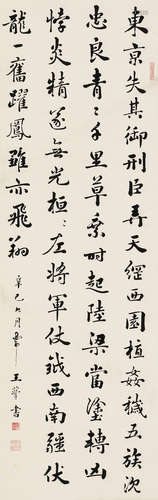 東京失其御刑臣弄天綱西園植姦穢五族沈
忠良青々千里草乘時起陸梁當塗轉凶
悖炎精遂無光桓々左將軍仗鉞西南疆伏
龍一奮躍鳳雛亦飛翔
辛巳六月 王書